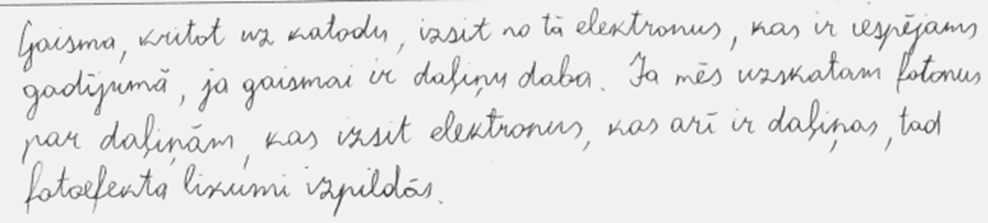 Gaisma, kritot uz katodu, izsit no tā elektronus, kas ir iespējams
gadījumā, ja gaismai ir daļiņu daba. Ja mēs uzskatam fotonus
par daļiņām, kas izsit elektronus, kas arī ir daļiņas, tad
fotoefekta likumi izpildās.